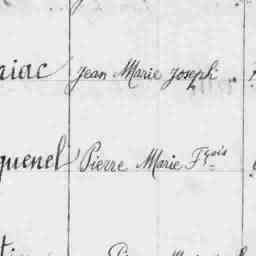 niac Jean Marie Joseph
quenel Pierre Marie Fçois